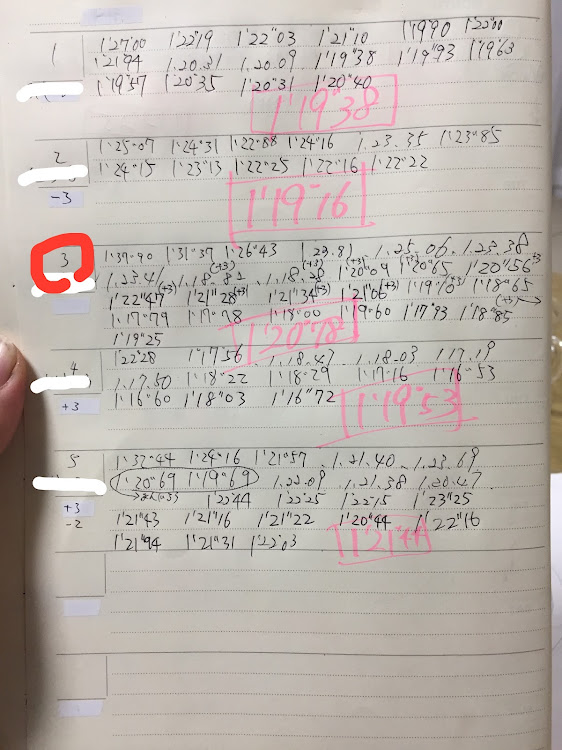 1 1'27"00 1'22"19 1'22"03 1'21"10 1'19"90 1'22"00
1'21"94 1.20.31 1.20.09 1'19"38 1'19"93 1'19"63
1'19"37 1'20"35 1'20"31 1'20"40
1'19"38
2 1'25"07 1'24"31 1'22"88 1'24"16 1.23.35 1'23"85
1'24"15 1'23"13 1'22"25 1'22"16 1'22"22
-3
1'19"16
3 1'37"90 1'31"37 1'26"43 1.25.06 1.23.38
1.23.41 1.18.81 (+3) 1.18.28 (+3) 1'20"09 (+3) 1'20"65 (+3) 1'20"56 +3
1'22"47 (+3) 1'21"28 (+3) 1'21"34 (+3) 1'21"06 (+3) 1'18"65
1'17"79 1'17"78 1'18"00 1'19"60 1'17"93 1'18"85 (+3)→
1'19"25
1'20"78
4 1'22"28 1'17"56 1.18.47 1.18.03 1.17.19
1.17.50 1'18"22 1'18"29 1'17"16 1'16"53
+3 1'16"60 1'18"03 1'16"72
1'19"53
5 1'32"44 1'24"16 1'21"57 1.21.40 1.23.69
1'20"69 1'19"69 1.22.09 1.21.38 1.20.47
+3 1'22"44 1'22"25 1'22"15 1'23"25
-2 1'21"43 1'21"16 1'21"22 1'20"44 1'22"16
1'21"94 1'21"31 1'22"03
1'21"44